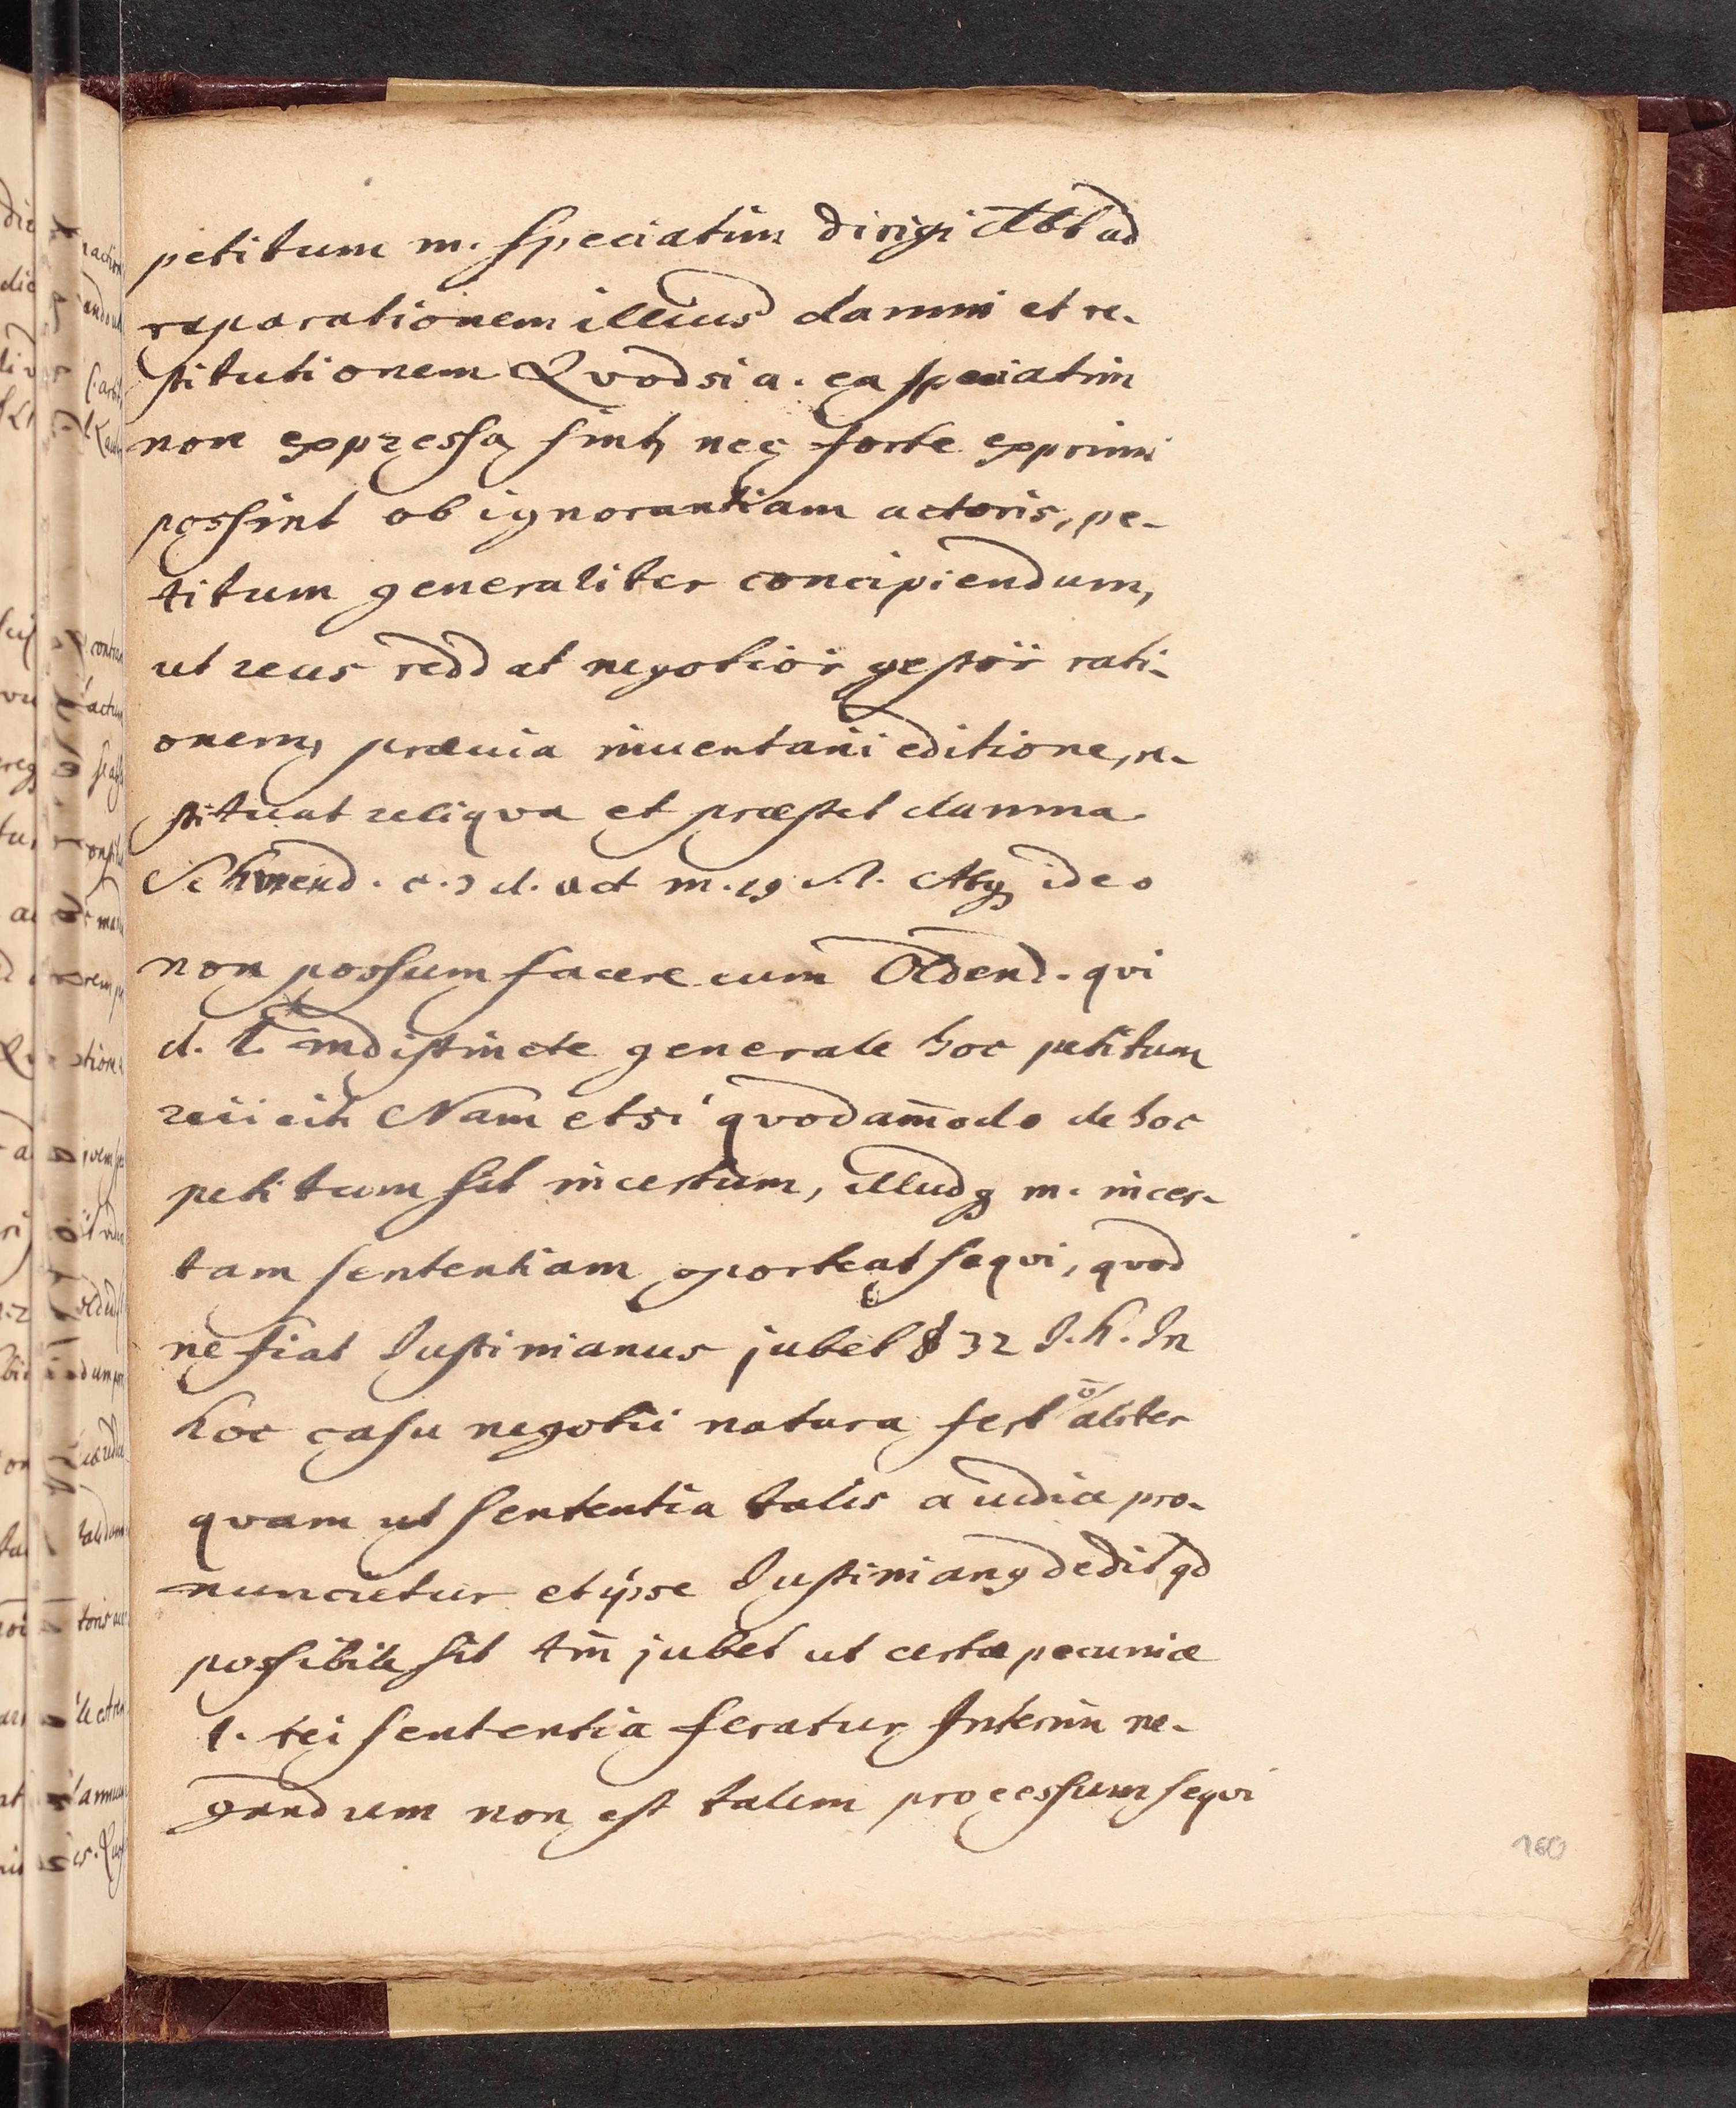 petitum m. speciatim dirigi debt ad
reparationem illius damni et re-
stitutionem Qvodsi a. ea speciatim
non expressa sint, neq forte exprimi
possint ob ignorantiam actoris, pe-
titum generaliter concipiendum,
ut reus reddat negotior gestor rati-
onem, prævia inventarii editione, re-
stituat reliqva et præstet damna
Schneid. c. 3 d. act m. 19 Atq ideo
non possum facere cum Oldend. qvi
d. l. indistincte generale hoc petitum
reiicit Nam etsi qvodam̄odo de hoc
petitum sit incertum, illudq m. incer-
tam sententiam oporteat seqvi, qvod
ne fiat Justinianus jubet § 32 J. h. In
hoc casu negotii natura fert ō aliter
qvam ut sententia talis a iudice pro-
nuncietur et ipse Justinianq dedit qd
possibile sit tm̄ jubet ut certæ pecuniæ
l. rei sententia feratur Interim ne-
gandum non est talem processum seqvi
160